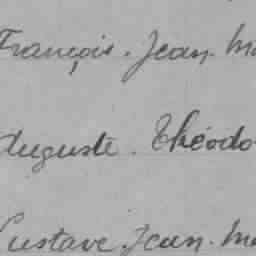 François. Jean. Ma
Auguste. Théodo
Gustave. Jean. Ma